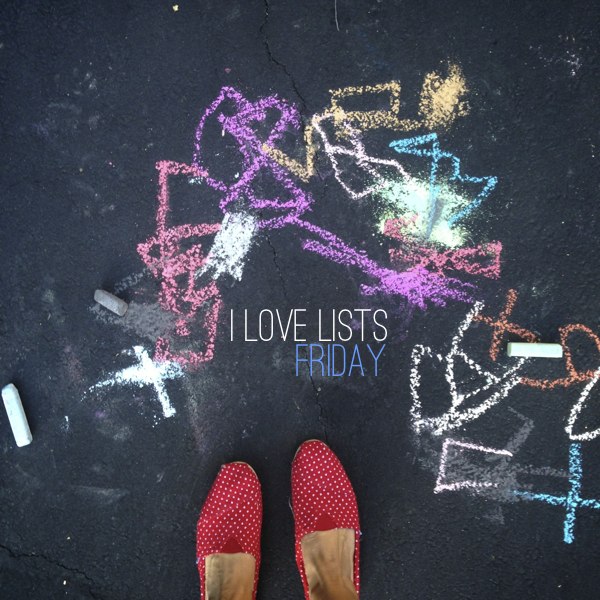 I LOVE LISTS
FRIDAY